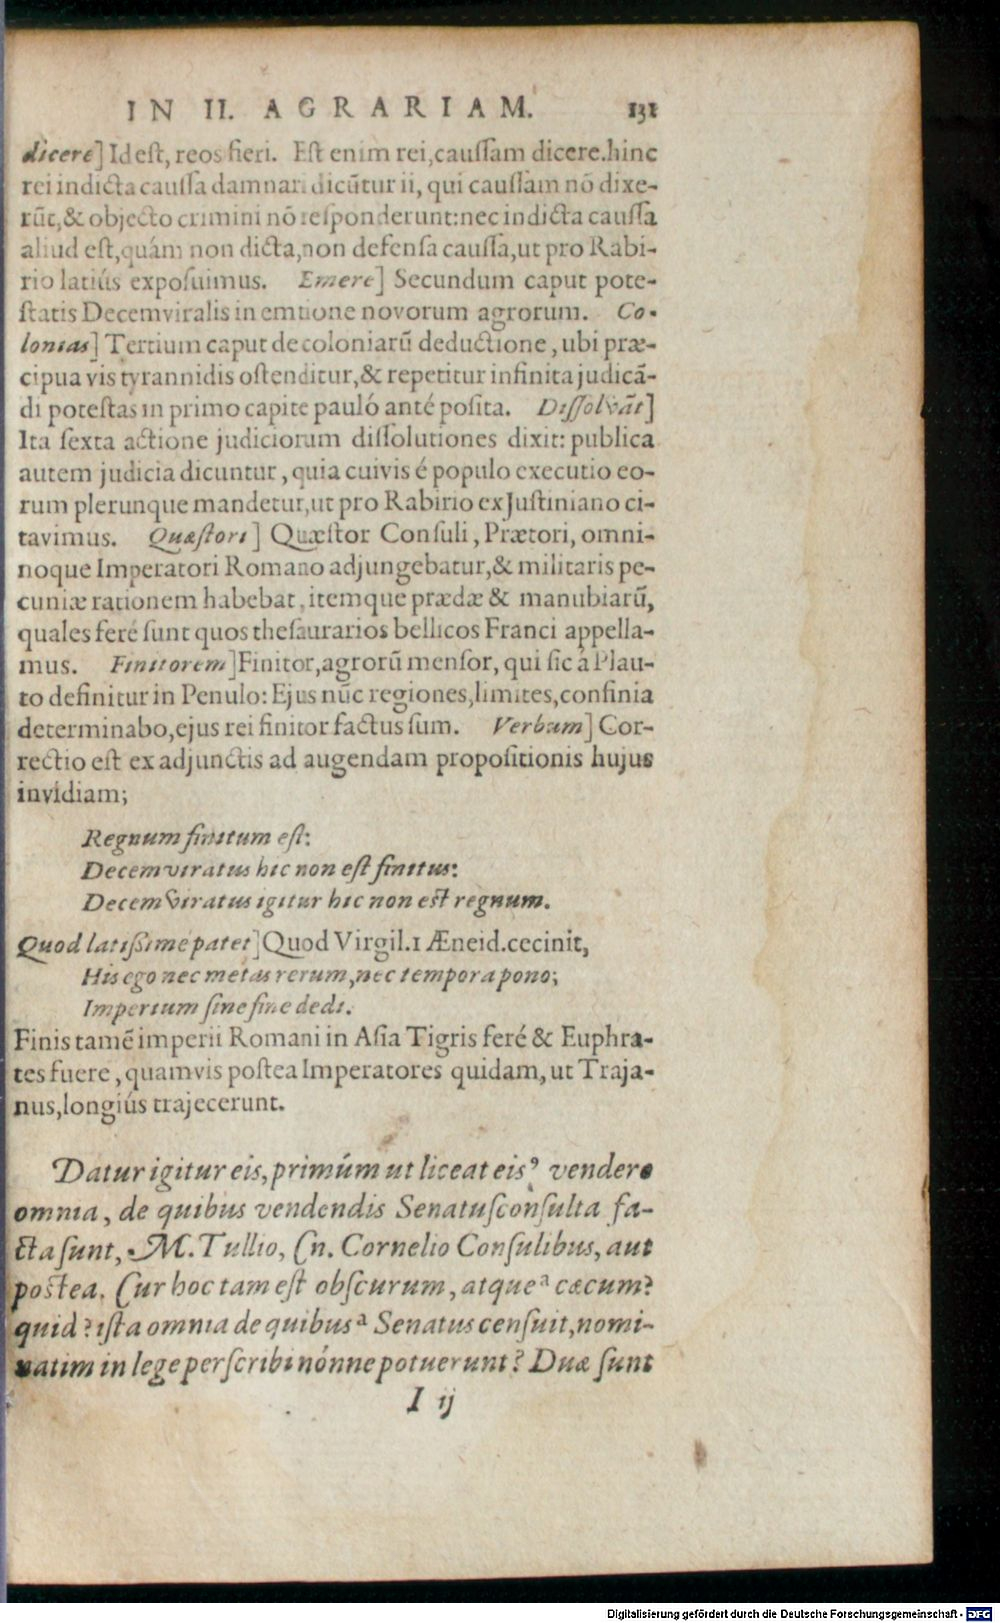 IN II. AGRARIAM. 131
dicere] Id est, reos fieri. Est enim rei, caussam dicere. hinc
rei indicta caussa damnari dicũtur ii, qui caussam nõ dixe-
rũt, & objecto crimini nõ responderunt: nec indicta caussa
aliud est, quám non dicta, non defensa caussa, ut pro Rabi-
rio latiús exposuimus. Emere] Secundum caput pote-
statis Decemviralis in emtione novorum agrorum. Co-
lonias] Tertium caput de coloniarũ deductione, ubi præ-
cipua vis tyrannidis ostenditur, & repetitur infinita judicã-
di potestas in primo capite pauló anté posita. Dissolvãt]
Ita sexta actione judiciorum dissolutiones dixit: publica
autem judicia dicuntur, quia cuivis é populo executio eo-
rum plerunque mandetur, ut pro Rabirio ex Justiniano ci-
tavimus. Quæstori] Quæstor Consuli, Prætori, omni-
noque Imperatori Romano adjungebatur, & militaris pe-
cuniæ rationem habebat, itemque prædæ & manubiarũ,
quales feré sunt quos thesaurarios bellicos Franci appella-
mus. Finitorem] Finitor, agrorũ mensor, qui sic á Plau-
to definitur in Penulo: Ejus nũc regiones, limites, confinia
determinabo, ejus rei finitor factus sum. Verbum] Cor-
rectio est ex adjunctis ad augendam propositionis hujus
invidiam;
Regnum finitum est:
Decemviratus hic non est finitus:
Decemviratus igitur hic non est regnum.
Quod latissime patet] Quod Virgil. 1 Æneid. cecinit,
His ego nec metas rerum, nec tempora pono;
Imperium sine fine dedi.
Finis tamẽ imperii Romani in Asia Tigris feré & Euphra-
tes fuere, quamvis postea Imperatores quidam, ut Traja-
nus, longiús trajecerunt.
Datur igitur eis, primúm ut liceat eis⁹ vendere
omnia, de quibus vendendis Senatusconsulta fa-
cta sunt, M. Tullio, Cn. Cornelio Consulibus, aut
postea. Cur hoc tam est obscurum, atque ᵃ cæcum?
quid? ista omnia de quibus ᵃ Senatus censuit, nomi-
natim in lege perscribi nónne potuerunt? Duæ sunt
I ij
Digitalisierung gefördert durch die Deutsche Forschungsgemeinschaft - DFG